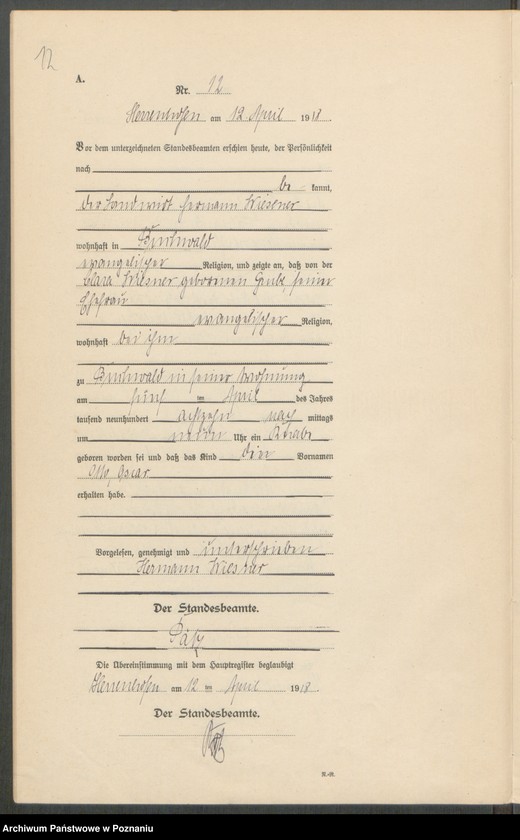 12
A.
Nr. 12
Herrenhofen am 12 April 1918.
Vor dem unterzeichneten Standesbeamten erschien heute, der Persönlichkeit
nach
be kannt,
der Landwirt Hermann Kiesner
wohnhaft in Buchwald
evangelischer Religion, und zeigte an, daß von der
Clara Kiesner geborenen seiner
Ehefrau
evangelischer Religion,
wohnhaft bei ihm
zu Buchwald in seiner Wohnung
am fünf ten April des Jahres
tausend neunhundert achtzehn nach mittags
um Uhr ein Knabe
geboren worden sei und daß das Kind die Vornamen
Otto, Oscar
erhalten habe.
Vorgelesen, genehmigt und unterschrieben
Hermann Kiesner
Der Standesbeamte.
Die Übereinstimmung mit dem Hauptregister beglaubigt
Herrenhofen am 12 ten April 1918.
Der Standesbeamte.
Archiwum Państwowe w Poznaniu